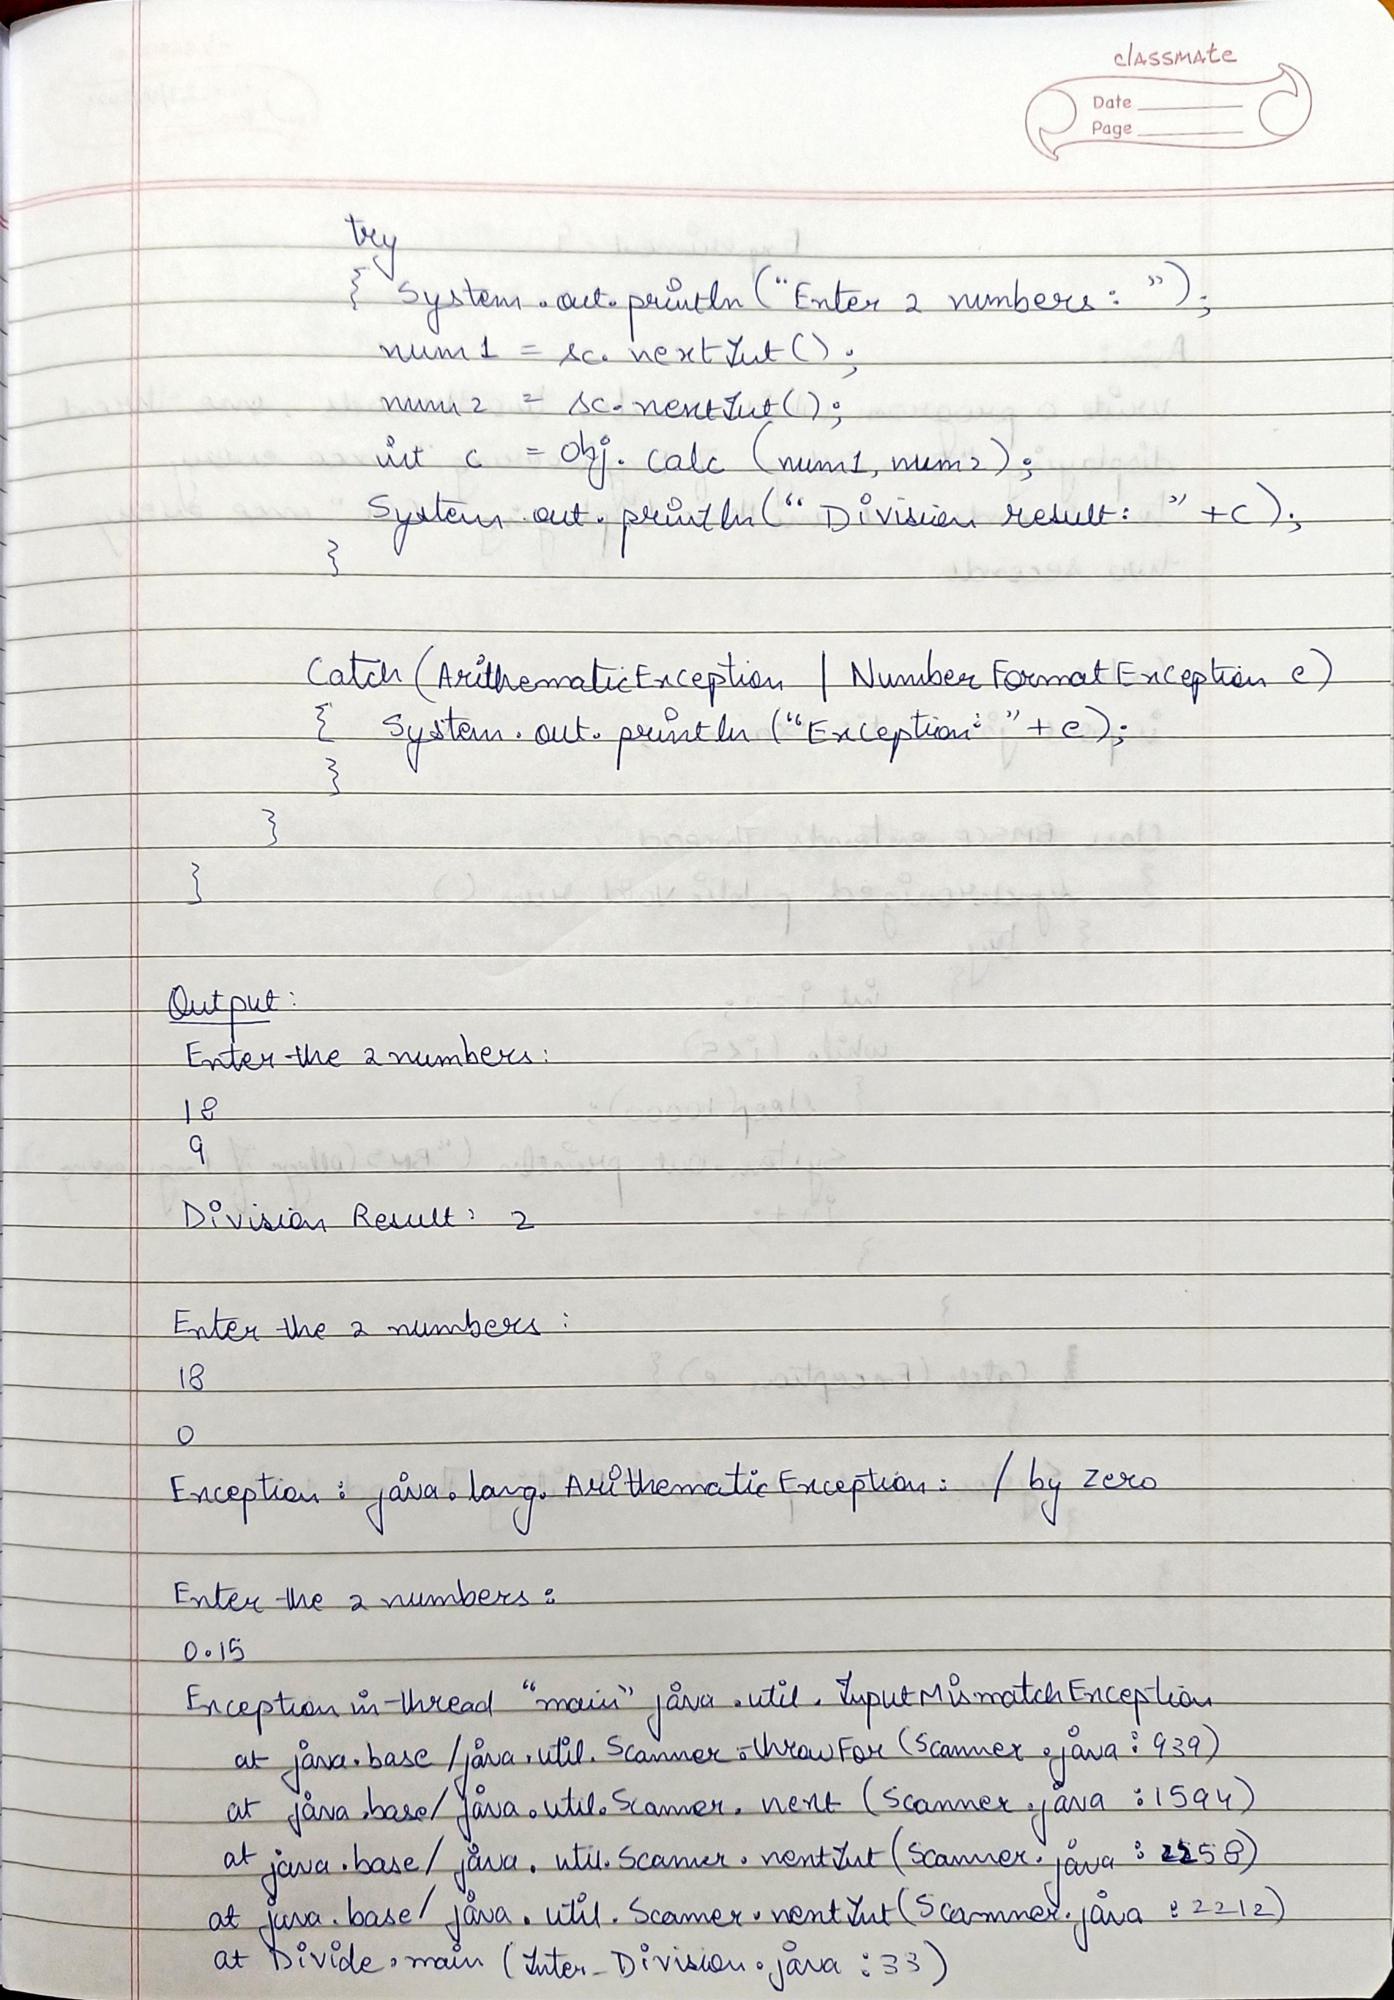 classmate
Date
Page
try
{ System.out.println("Enter 2 numbers: ");
num1 = sc.nextInt();
num2 = sc.nextInt();
int c = obj.calc (num1, num2);
System.out.println("Division result: "+c);
}
Catch (ArithematicException | NumberFormatException e)
{ System.out.println ("Exception: "+e);
}
}
}
Output:
Enter the 2 numbers:
18
9
Division Result: 2
Enter the 2 numbers:
18
0
Exception: java.lang.ArithematicException: / by zero
Enter the 2 numbers:
0.15
Exception in thread "main" java.util.InputMismatchException
at java.base/java.util.Scanner.throwFor (Scanner.java:939)
at java.base/java.util.Scanner.next (Scanner.java:1594)
at java.base/java.util.Scanner.nextInt (Scanner.java:2258)
at java.base/java.util.Scanner.nextInt (Scanner.java:2212)
at Divide.main (Inter_Division.java:33)